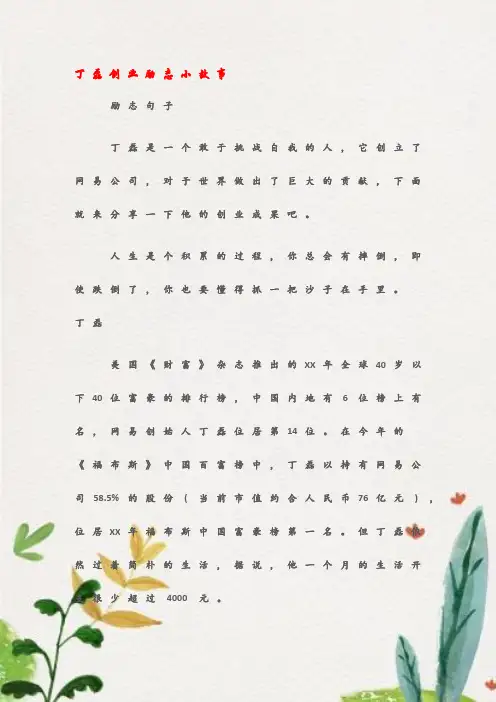 丁磊创业励志小故事
励志句子
丁磊是一个敢于挑战自我的人，它创立了
网易公司，对于世界做出了巨大的贡献，下面
就来分享一下他的创业成果吧。
人生是个积累的过程，你总会有摔倒，即
使跌倒了，你也要懂得抓一把沙子在手里。
丁磊
美国《财富》杂志推出的XX年全球40岁以
下40位富豪的排行榜，中国内地有6位榜上有
名，网易创始人丁磊位居第14位。在今年的
《福布斯》中国百富榜中，丁磊以持有网易公
司58.5%的股份(当前市值约合人民币76亿元)，
位居XX年福布斯中国富豪榜第一名。但丁磊依
然过着简朴的生活，据说，他一个月的生活开
支很少超过4000元。